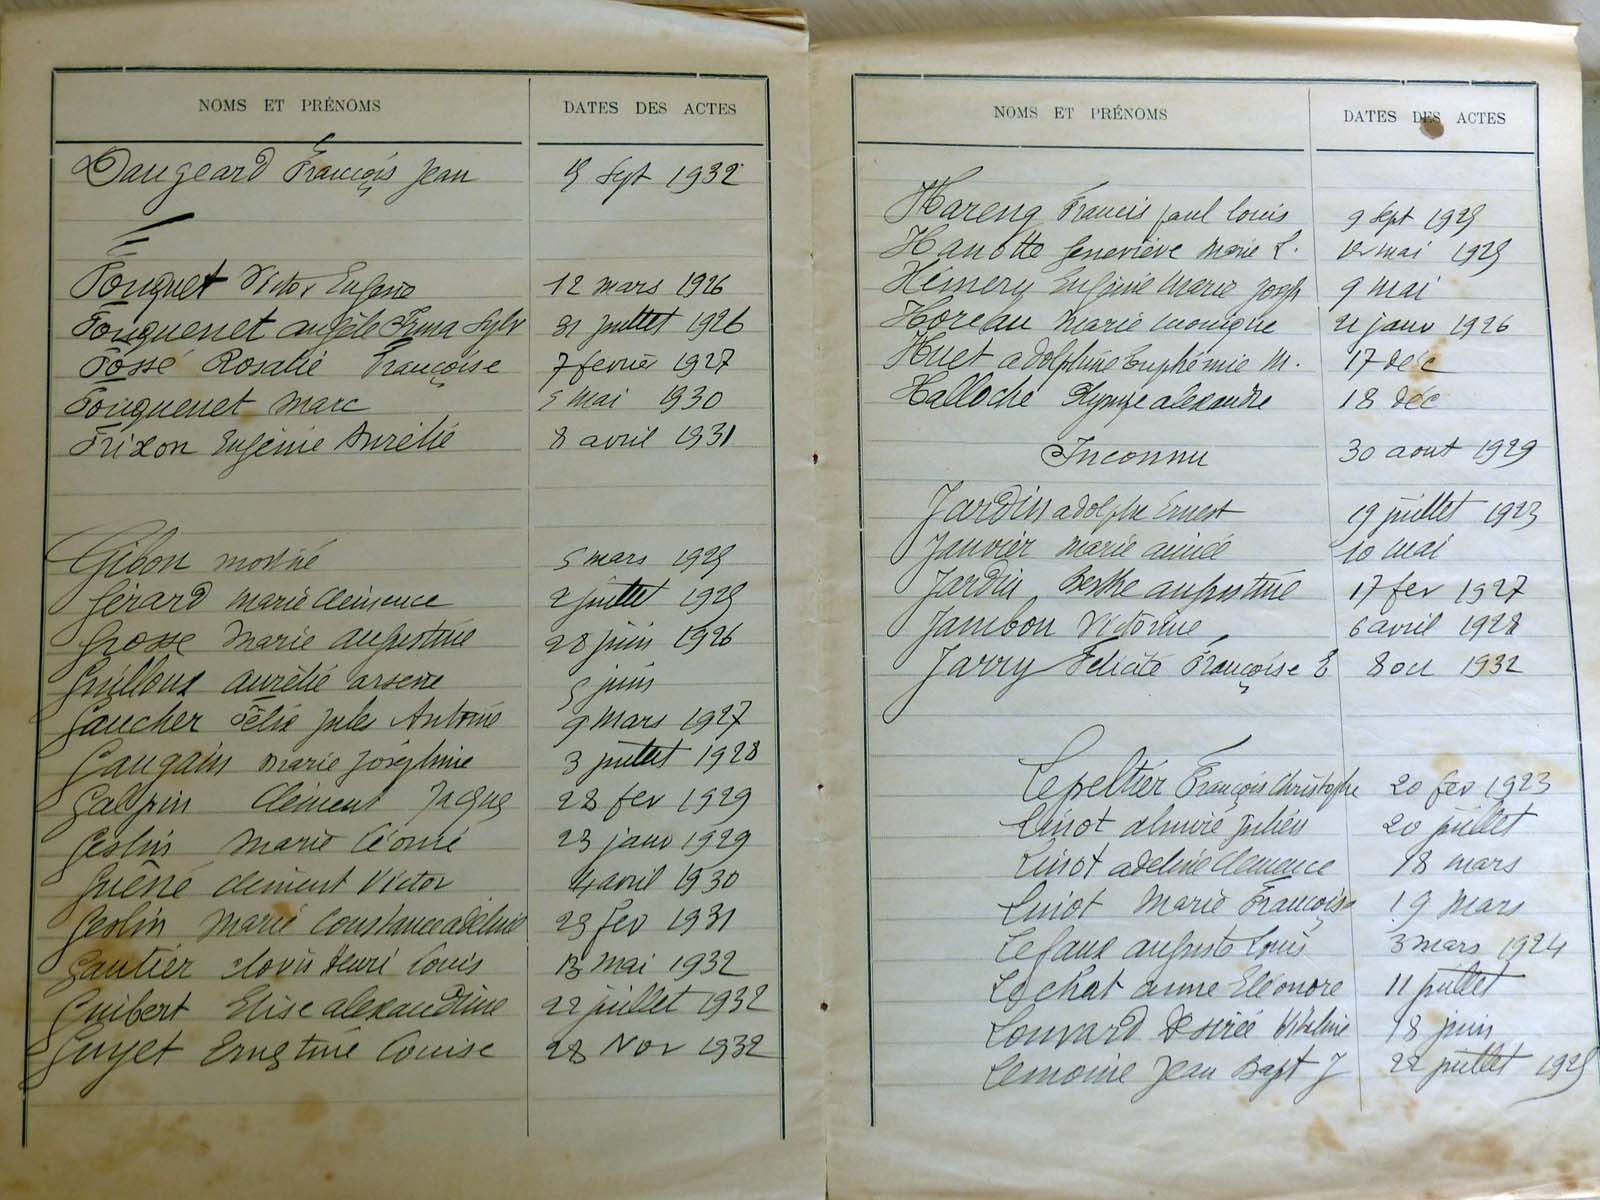 NOMS ET PRÉNOMS DATES DES ACTES
Daugeard François Jean 5 Sept 1932
F
Fouquet Victor Eugène 12 mars 1926
Fouquenet angèle Irma Sylv 31 juillet 1926
Fossé Rosalie Françoise 7 fevrier 1927
Fouquenet Marc 5 mai 1930
Frixon Eugénie Aurélie 8 avril 1931
Gibon 5 mars 1925
Gérard Marie Clémence 2 juillet 1925
Grosse Marie augustine 28 juin 1926
Guilloux aurélie arsène 5 juin
Gaucher Félix Jules Antoine 9 mars 1927
Gaugain Marie Joséphine 3 juillet 1928
Galpin Clément Jacques 28 fev 1929
Geslin Marie Léonie 23 janv 1929
Guéné clément Victor 4 avril 1930
Geslin Marie Constance adeline 23 fev 1931
Gautier clovis Henri Louis 13 mai 1932
Guibert Elise alexandrine 22 juillet 1932
Guyet Ernestine Louise 28 Nov 1932
NOMS ET PRÉNOMS DATES DES ACTES
Hareng Francis paul louis 9 sept 1925
Hanotte Geneviève Marie L. mai 1925
Hémery Eugénie Marie Josph 9 mai
Horeau Marie monique 21 janv 1926
Huet adolphine Euphémie M. 17 déc
Halloche Olympe alexandre 18 déc
Inconnu 30 aout 1929
Jardin adolphe Ernest 19 juillet 1923
Janvier Marie aimée 10 mai
Jardin Berthe augustine 17 fev 1927
Jambon Victorine 6 avril 1928
Jarry Félicité Françoise E 8 oct 1932
Lepeltier François Christophe 20 fev 1923
Linot julien 20 juillet
Linot adeline Clémence 18 mars
Linot Marie Françoise 19 mars
Lefaux auguste Louis 3 mars 1924
Lechat anne Eléonore 11 juillet
Louvard Désirée 18 juin
Lemoine Jean Bapt J 22 juillet 1925